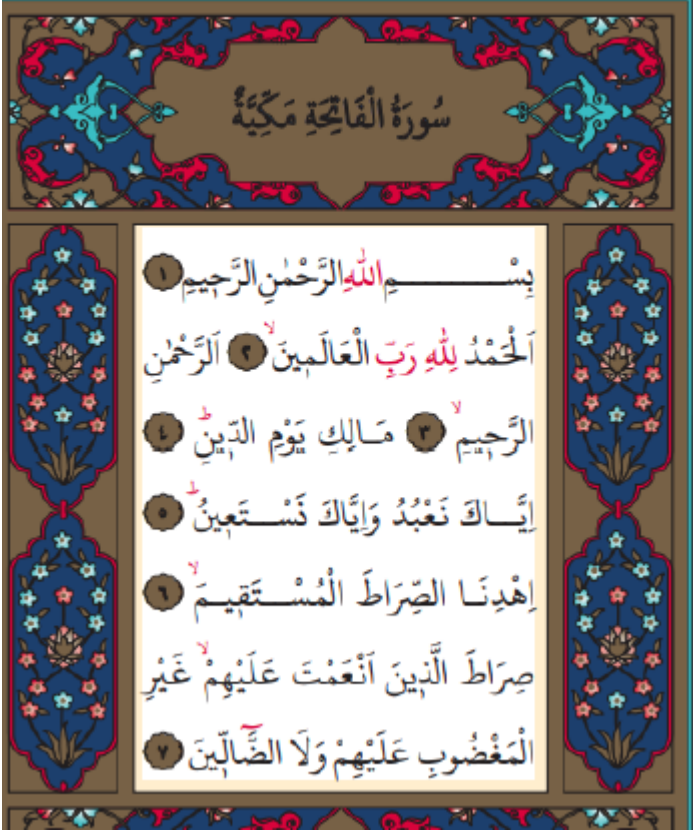 سُورَةُ الْفَاتِحَةِ مَكِّيَّةٌ
بِسْــــــــمِ اللّٰهِ الرَّحْمٰنِ الرَّحٖيمِ ١
اَلْحَمْدُ لِلّٰهِ رَبِّ الْعَالَمٖينَۙ ٢ اَلرَّحْمٰنِ
الرَّحٖيمِۙ ٣ مَـالِكِ يَوْمِ الدّٖينِؕ ٤
اِيَّـــاكَ نَعْبُدُ وَاِيَّاكَ نَسْـــتَعٖينُؕ ٥
اِهْدِنَــا الصِّرَاطَ الْمُسْـــتَقٖيــمَۙ ٦
صِرَاطَ الَّذٖينَ اَنْعَمْتَ عَلَيْهِمْۙ غَيْرِ
الْمَغْضُوبِ عَلَيْهِمْ وَلَا الضَّٓالّٖينَ ٧